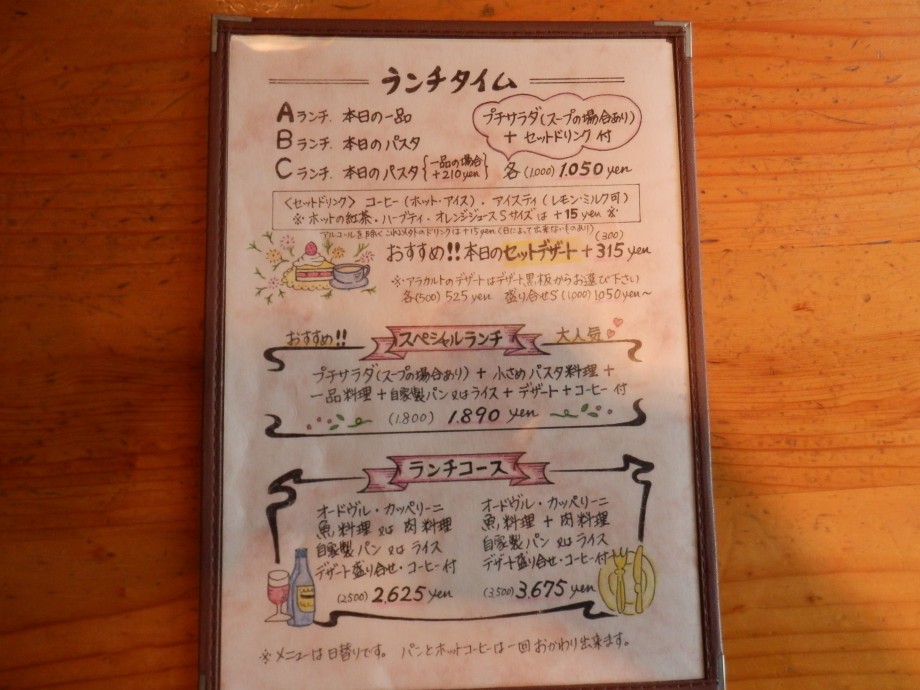 ランチタイム
Aランチ. 本日の一品
Bランチ. 本日のパスタ
Cランチ. 本日のパスタ{一品の場合 +210yen}
プチサラダ(スープの場合あり)
+ セットドリンク 付
各 (1,000) 1.050 yen
<セットドリンク> コーヒー(ホット・アイス)・アイスティ(レモン・ミルク可)
※ ホットの紅茶・ハーブティ・オレンジジュースSサイズは +15 yen ※
アルコールを除くこれ以外のドリンクは+15yen(日によって出来ないものあり)
(300)
おすすめ!! 本日のセットデザート +315 yen
※アラカルトのデザートはデザート黒板からお選び下さい
各(500) 525 yen 盛り合せS(1,000) 1050yen~
おすすめ!!
スペシャルランチ
大人気
プチサラダ(スープの場合あり) + 小さめパスタ料理 +
一品料理 + 自家製パン又はライス + デザート + コーヒー 付
(1.800) 1.890 yen
ランチコース
オードヴル・カッペリーニ
魚料理 又は 肉料理
自家製パン 又は ライス
デザート盛り合せ・コーヒー付
(2500) 2.625 yen
オードヴル・カッペリーニ
魚料理 + 肉料理
自家製パン 又は ライス
デザート盛り合せ・コーヒー付
(3,500) 3.675 yen
※メニューは日替りです。 パンとホットコーヒーは一回おかわり出来ます。